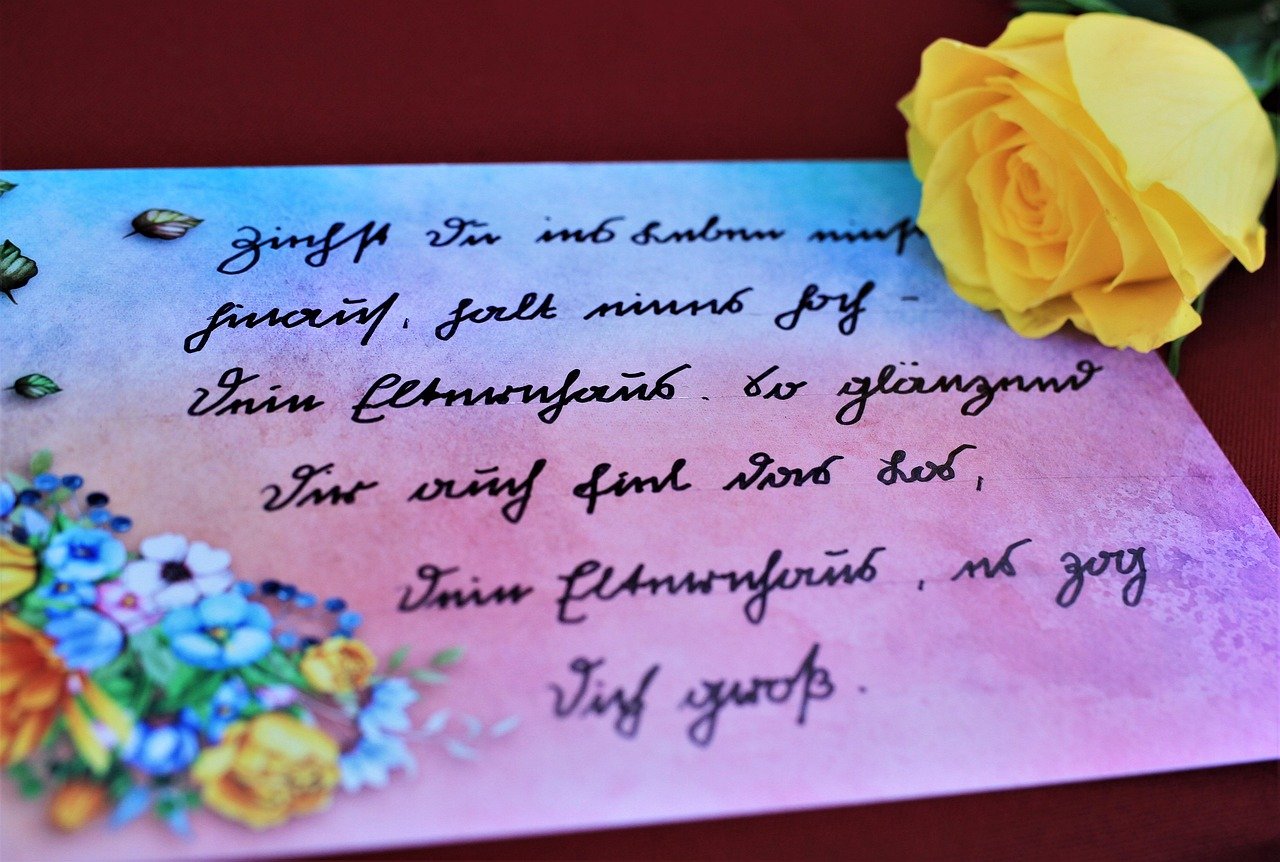 Ziehst Du ins Leben
hinaus, halt eines hoch -
Dein Elternhaus. So glänzend
Dir auch fiel das Los,
Dein Elternhaus, es zog
Dich groß.